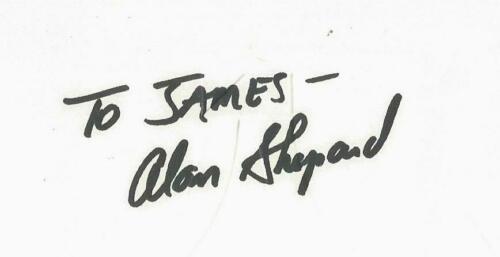 TO JAMES -
Alan Shepard